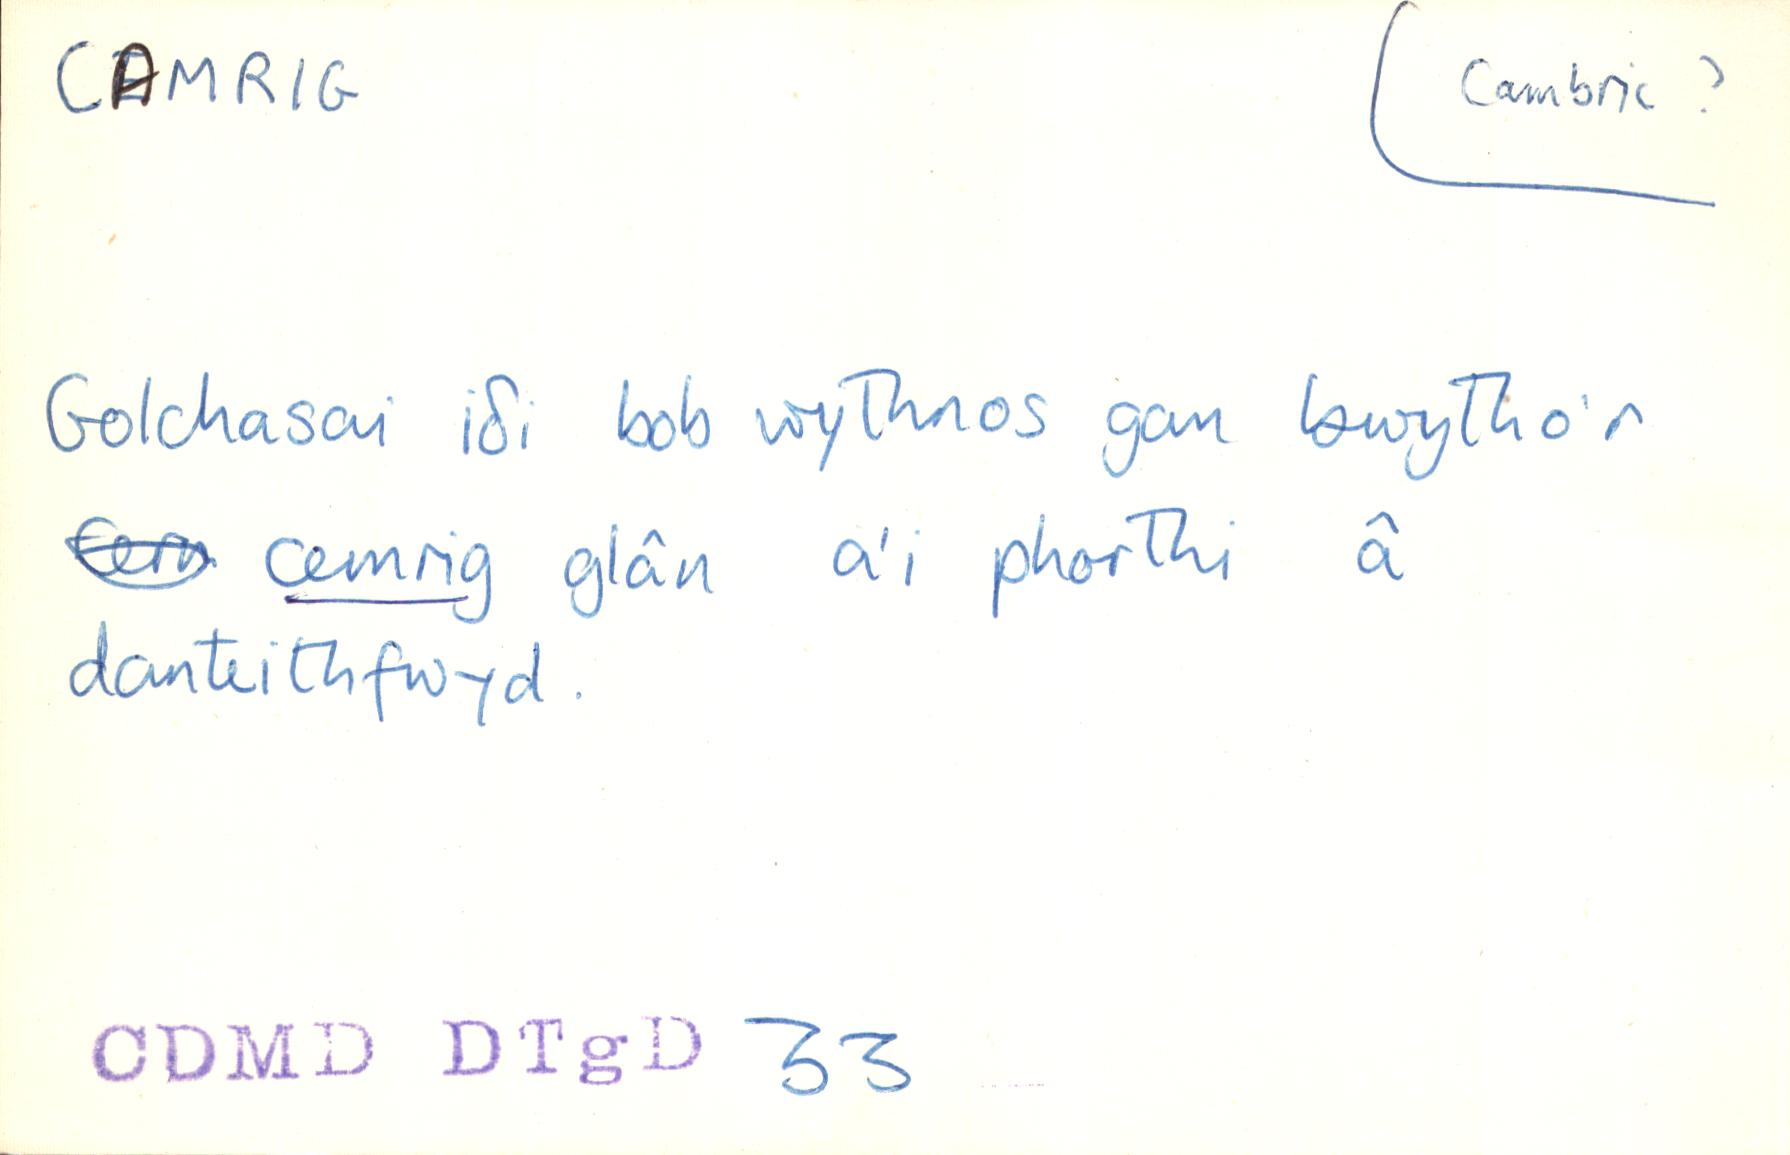 CAMRIG
Cambric ?
Golchasai iδi bob wythnos gan bwytho'r
cemrig glân a'i phorthi â
danteithfwyd.
CDMD DTgD 33